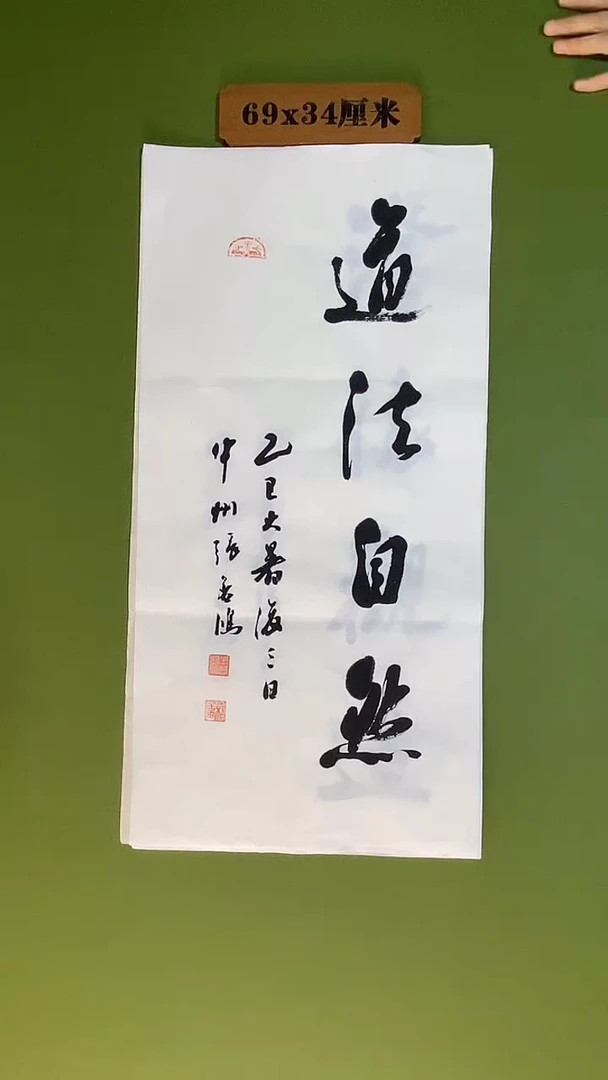 69x34厘米
道法自然
乙巳大暑後三日
中州張善鴻